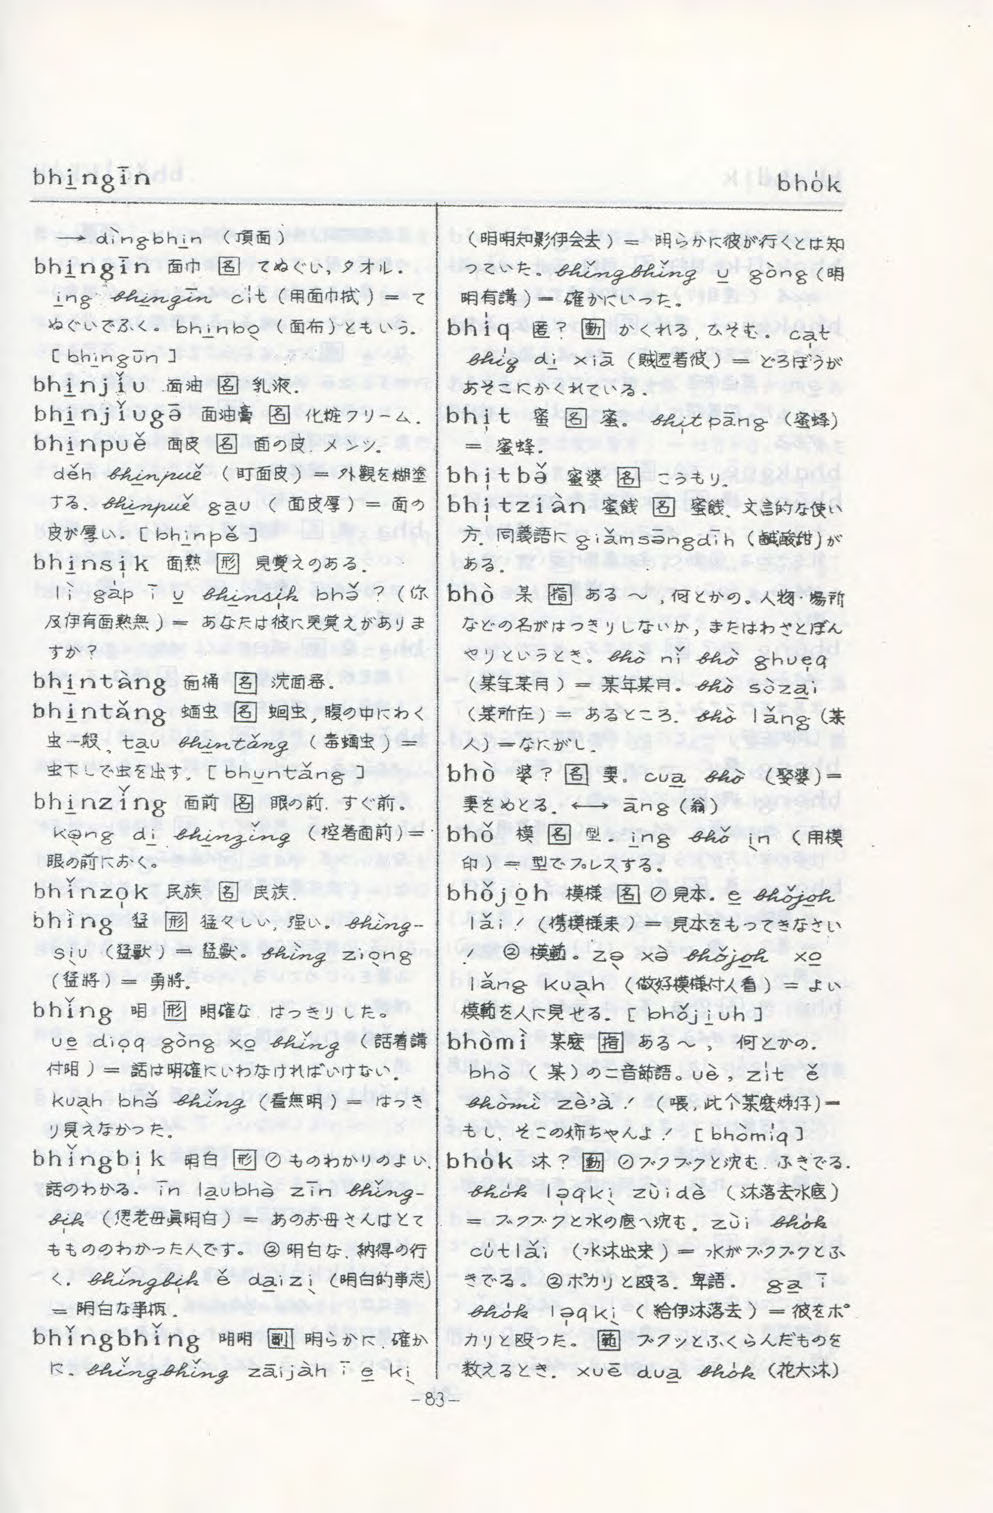 bhi̱ngīn
bhȯk
→ dìngbhi̱n （項面）
bhi̱ngīn 面巾 [名] てぬぐい，タオル．
i̱ng bhi̱ngīn ci̍t （用面巾拭）＝ て
ぬぐいでふく。bhi̱nbo̱ （面布）ともいう。
[bhi̱ngūn]
bhi̱njǐu 面油 [名] 乳液．
bhi̱njǐugā 面油膏 [名] 化粧クリーム．
bhi̱npuě 面皮 [名] 面の皮．メンツ．
děn bhi̱npuě （町面皮）＝ 外觀を糊塗
する．bhi̱npuě ga̱u （面皮厚）＝ 面の
皮が厚い。[bhi̱npě]
bhi̱nsi̍k 面熟 [形] 見覚えのある．
lì gàp ī u̱ bhi̱nsi̍k bhǒ？（你
及伊有面熟無）＝ あなたは彼に見覚えがありま
すか？
bhi̱ntàng 面桶 [名] 洗面器．
bhi̱ntǎng 蛔虫 [名] 蛔虫，腹の中にわく
虫一般．ta̱u bhi̱ntǎng （毒蛔虫）＝
虫下しで虫を出す．[bhu̱ntǎng]
bhi̱nzǐng 面前 [名] 眼の前．すぐ前．
kǝ̀ng di̱ bhi̱nzǐng （控着面前）＝
眼の前におく。
bhǐnzo̍k 民族 [名] 民族．
bhìng 猛 [形] 猛々しい，强い。bhìng-
siù （猛獸）＝ 猛獸。bhìng zio̱ng
（猛將）＝ 勇將。
bhǐng 明 [形] 明確な．はっきりした。
ue̱ dio̍q gòng xo̱ bhǐng （話着講
付明）＝ 話は明確にいわなければいけない．
kuàh bhǒ bhǐng （看無明）＝ はっき
り見えなかった。
bhǐngbi̍k 明白 [形] ① ものわかりのよい．
話のわかる．īn la̱ubhə̀ zīn bhǐng-
bi̍k （偲老母眞明白）＝ あのお母さんはとて
ももののわかった人です。② 明白な．納得の行
く．bhǐngbi̍k ě da̱izi̱ （明白的事志）
＝ 明白な事柄．
bhǐngbhǐng 明明 [副] 明らかに．確か
に．bhǐngbhǐng zāijàh ī e̱ kì
（明明知影伊会去）＝ 明らかに彼が行くとは知
っていた。bhǐngbhǐng u̱ gòng（明
明有講）＝ 確かにいった。
bhi̍q 匿． [動] かくれる．ひそむ．ca̍t
bhi̍q di̱ xiā （賊匿着彼）＝ どろぼうが
あそこにかくれている．
bhi̍t 蜜 [名] 蜜。bhi̍tpāng （蜜蜂）
＝ 蜜蜂．
bhi̍tbə̌ 蜜婆 [名] こうもり．
bhi̍tziàn 蜜餞 [名] 蜜餞．文言的な使い
方．同義語に giǎmsə̄ngdīh （鹹酸甜）が
ある．
bhò 某 [指] ある～，何とかの．人物・場所
などの名がはっきりしないか，またはわざとぼん
やりというとき。bhò nǐ bhò ghue̍q
（某年某月）＝ 某年某月。bhò sòza̱i
（某所在）＝ あるところ．bhò lǎng（某
人）＝なにがし。
bhò 婆？ [名] 妻。cua̱ bhò （娶婆）＝
妻をめとる．←→ āng（翁）
bhǒ 模 [名] 型．i̱ng bhǒ ìn （用模
印）＝ 型でプレスする。
bhǒjo̱h 模樣 [名] ① 見本。e̱ bhǒjo̱h
lǎi！（攜模樣来）＝ 見本をもってきなさい
！ ② 模範。zə̀ xə̀ bhǒjo̱h xo̱
lǎng kuàh （做好模樣付人看）＝ よい
模範を人に見せる．[bhǒji̱uh]
bhòmì 某麽 [指] ある～，何とかの．
bhò （某）の二音節語。uè，zi̍t ě
bhòmì zè'à！（喂，此个某麽姊仔）＝
もし，そこの姉ちゃんよ！[bhòmi̍q]
bhȯk 沐？ [動] ① ブクブクと沈む．ふきでる．
bhȯk lə̍qkì zùidè （沐落去水底）
＝ ブクブクと水の底へ沈む．zùi bhȯk
cu̍tlǎi （水沐出来）＝ 水がブクブクとふ
きでる。② ポカリと殴る．卑語． ga̱ ī
bhȯk lə̍qkì （給伊沐落去）＝ 彼をポ
カリと殴った。 [範] ブクッとふくらんだものを
数えるとき．xuē dua̱ bhȯk （花大沐）
-83-